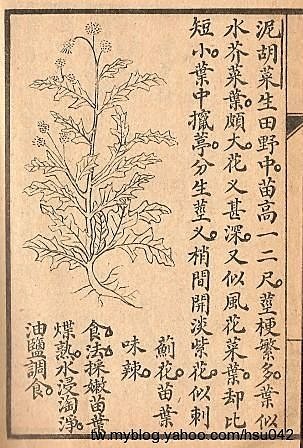 泥胡菜生田野中。苗高一二尺。莖梗繁多。葉似
水芥菜葉。頗大。花叉甚深。又似風花菜葉。却比
短小。葉中攛葶。分生莖叉。梢間開淡紫花。似刺
薊花。苗葉
味辣。
食法。採嫩苗葉
煠熟。水浸淘淨。
油鹽調食。
tw.myblog.yahoo.com/hsu042